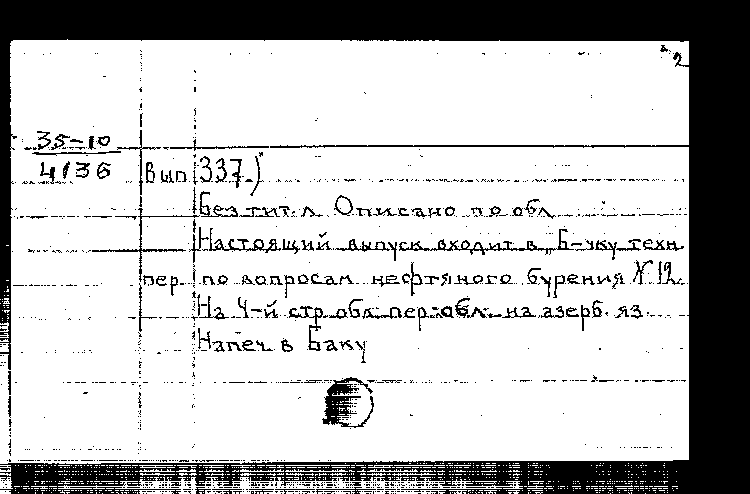 2
35-10
4136
Вып. 337.)"
Без тит. л. Описано по обл.
Настоящий выпуск входит в „Б-чку техн.
пер. по вопросам нефтяного бурения № 12.
На 4-й стр. обл. пер. обл. на азерб. яз.
Напеч. в Баку